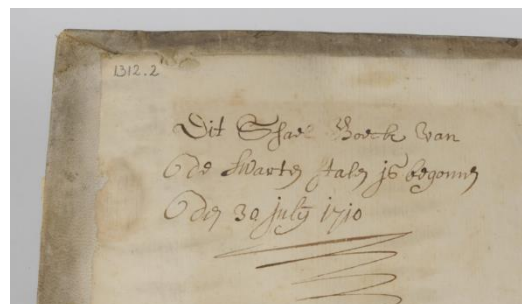 1312.2
Dit Stael Boeck van
de swarte stalen is begonnen
den 30 july 1710